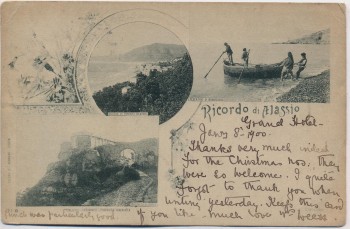 Ricordo di Alassio
Grand Hotel
Jany 8- 1900.
Thanks very much indeed
for the Christmas nos. They
were so welcome. I quite
forgot to thank you when
writing yesterday. Keep this and
if you like. Much love
which was particularly good